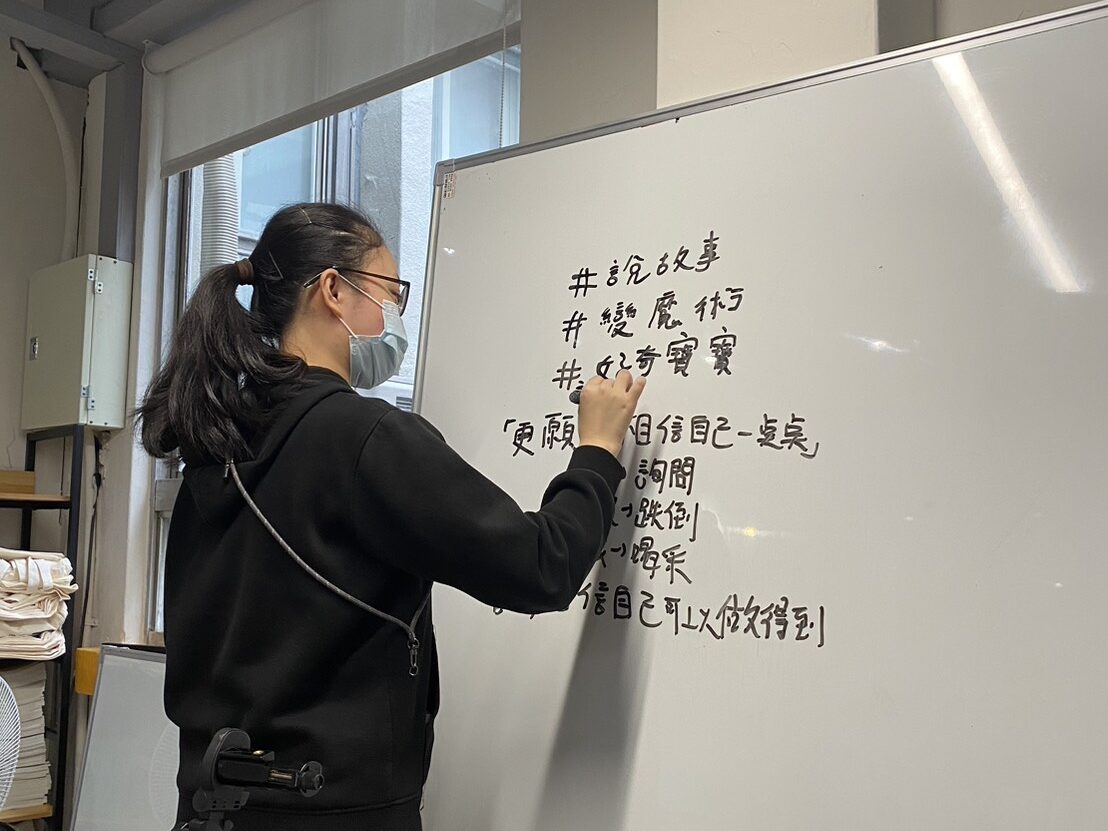 #說故事
#變魔術
#好奇寶寶
「更願 相信自己一点点」
詢問
→跌倒
→喝采
信自己可以做得到」